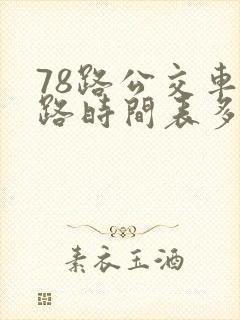 78路公交車
路時間表多
素衣玉酒